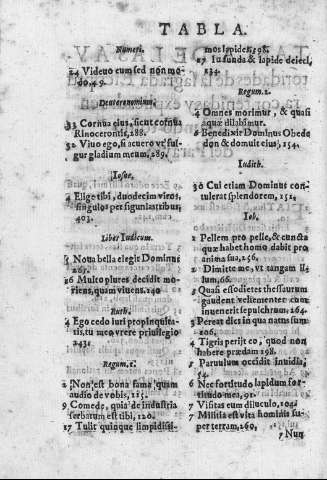 TABLA.
Numeri.
24 Videvo eum sed non mo-
do, 49.
Deuteronomium.
33 Cornua eius, sicut cornua
Rinocerontis, 288.
32 Vivo ego, si acuero vt ful-
gur gladium meum, 289.
Iosue,
4 Elige tibi, duodecim viros,
singulos per singulas tribus,
403.
Liber Iudicum.
5 Nova bella elegit Dominus
267.
16 Multo plures occidit mo-
riens, quam vivens. 240
Ruth.
4 Ego cedo iuri propinquita-
tis, tu meo vtere priuilegio
243.
Regum, 1.
2 Non est bona fama quam
audio de vobis, 115.
9 Comede, quia de industria
seruatum est tibi, 120.
17 Tulit quinque limpidissi-
mos lapides. 198.
17 In funda & lapide deieci,
234.
Regum. 2.
4 Omnes morimur, & quasi
aquæ dilabimur.
6 Benedixit Dominus Obede
don & domui eius, 154.
Iudith.
10 Cui etiam Dominus con-
tulerat splendorem, 151.
Iob.
2 Pellem pro pelle, & cuncta
quæ habet homo dabit pro
anima sua, 256.
2 Dimitte me, vt tangam il-
lum, 66.
3 Quasi effodietes thesaurum
gaudent vehementer cum
inuenerit sepulchrum. 264.
3 Pereat dies in qua natus sum
206.
4 Tigris perijt eo, quod non
habere prædam 198.
5 Paruulum occidit inuidia,
54.
6 Nec fortitudo lapidum for-
titudo mea, 91.
7 Visitas eum diluculo, 104.
7 Militia est vita hominis su-
per terram, 260,
7 Nun